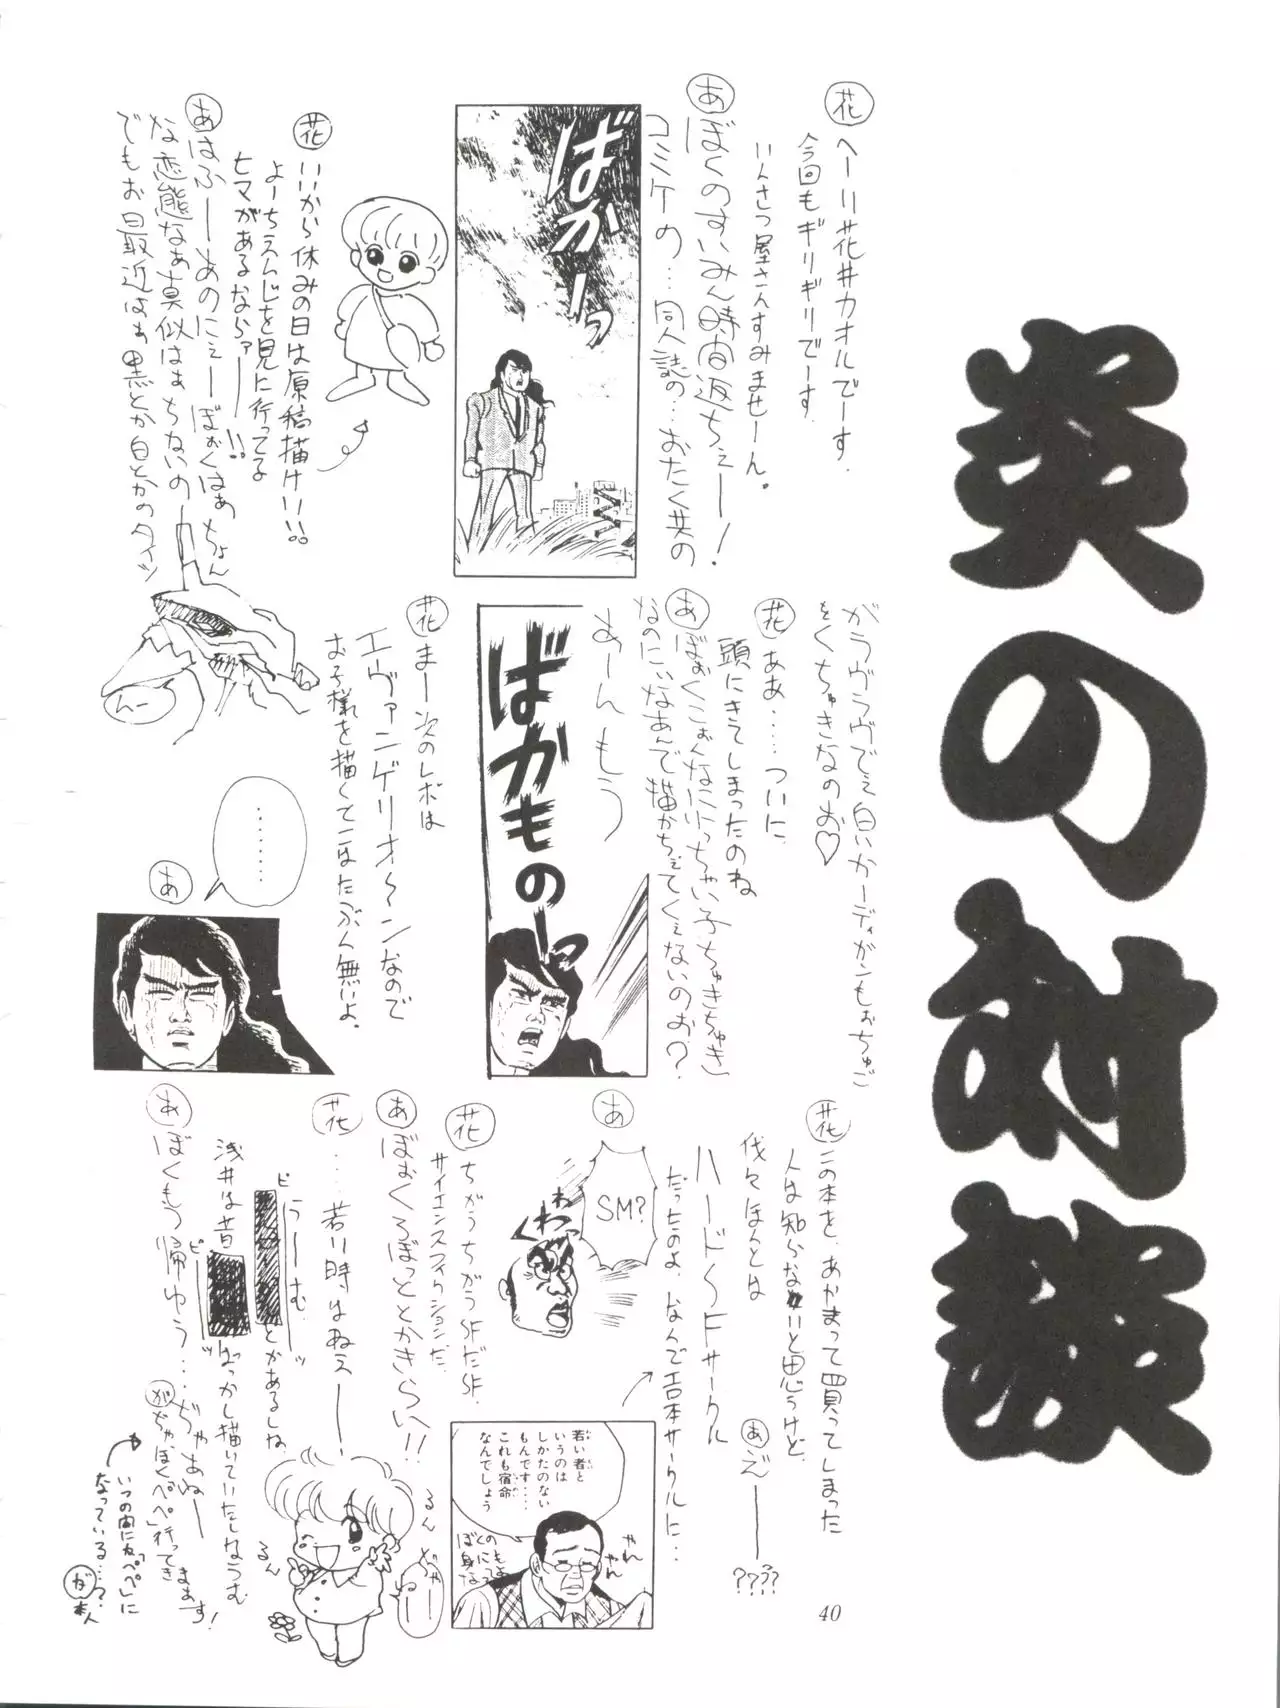 炎の対談
花 ヘーイ!花井カオルでーす
今回もギリギリでーす
いんさつ屋さんすみませーん。
あ ぼくのすいみん時間返ちぇー!
コミケの…同人誌の…おたく共の
ばかーっ
花 いいから休みの日は原稿描け!!!。
よーちえんじを見に行ってる
ヒマがあるならァー!!
あ はふーあのにぇーぼぉくはぁちょん
な恋態なぁ真似はぁちないの
でもお最近はぁ黒とか白とかのタイツ
がラヴラヴでぇ白いカーディガンもぉちゅご
をくちゅきなのお♡
花 ああ…ついに
頭にきてしまったのね
あ ぼぉくこぉんなにいっちゃい子ちゅきちゅき
なのにいなあんで描かちぇてくぇないのお?
あーんもう
ばかものーっ
花 まー次のレボは
エヴァンゲリオ〜ンなので
お子様を描くことはたぶん無いよ。
んー
………
あ
花 この本を、あやまって買ってしまった
人は知らないと思うけど、
伐々ほんとは
あ えー????
ハード〜SFサークル
だったのよ、なんでエロ本サークルに…
若い者と
いうのは
しかたのない
もんです……
これも宿命
なんでしょう
やんやん
あ SM?
くわわっ
花 ちがうちがうSFだSF.
サイエンスフィクションだ.
あ ぼぉくろぼっととかきらい!!
花 …若い時はねえー、
ピーうーむ
とかあるしね
浅井は昔
ピーッ
ばっかし描いていたしなうむ
あ ぼくもう帰ゆう…ぢゃあねー
がちゃぼく「ペペ」行ってき
まぁす!
いつの間にか「ペペ」に
なっている…?
が 本人
るんるん
40